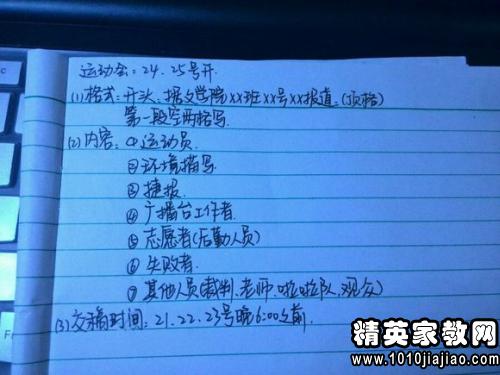 运动会：24、25号开
(1)格式：开头：据文学院XX班XX号XX报道：(顶格)
第一段空两格写.
(2)内容：①运动员
②环境描写
③捷报
④广播台工作者
⑤志愿者(后勤人员)
⑥失败者
⑦其他人员(裁判、老师、啦啦队、观众)
(3)交稿时间：21、22、23号晚6:00之前.
精英家教网
www.1010jiajiao.com